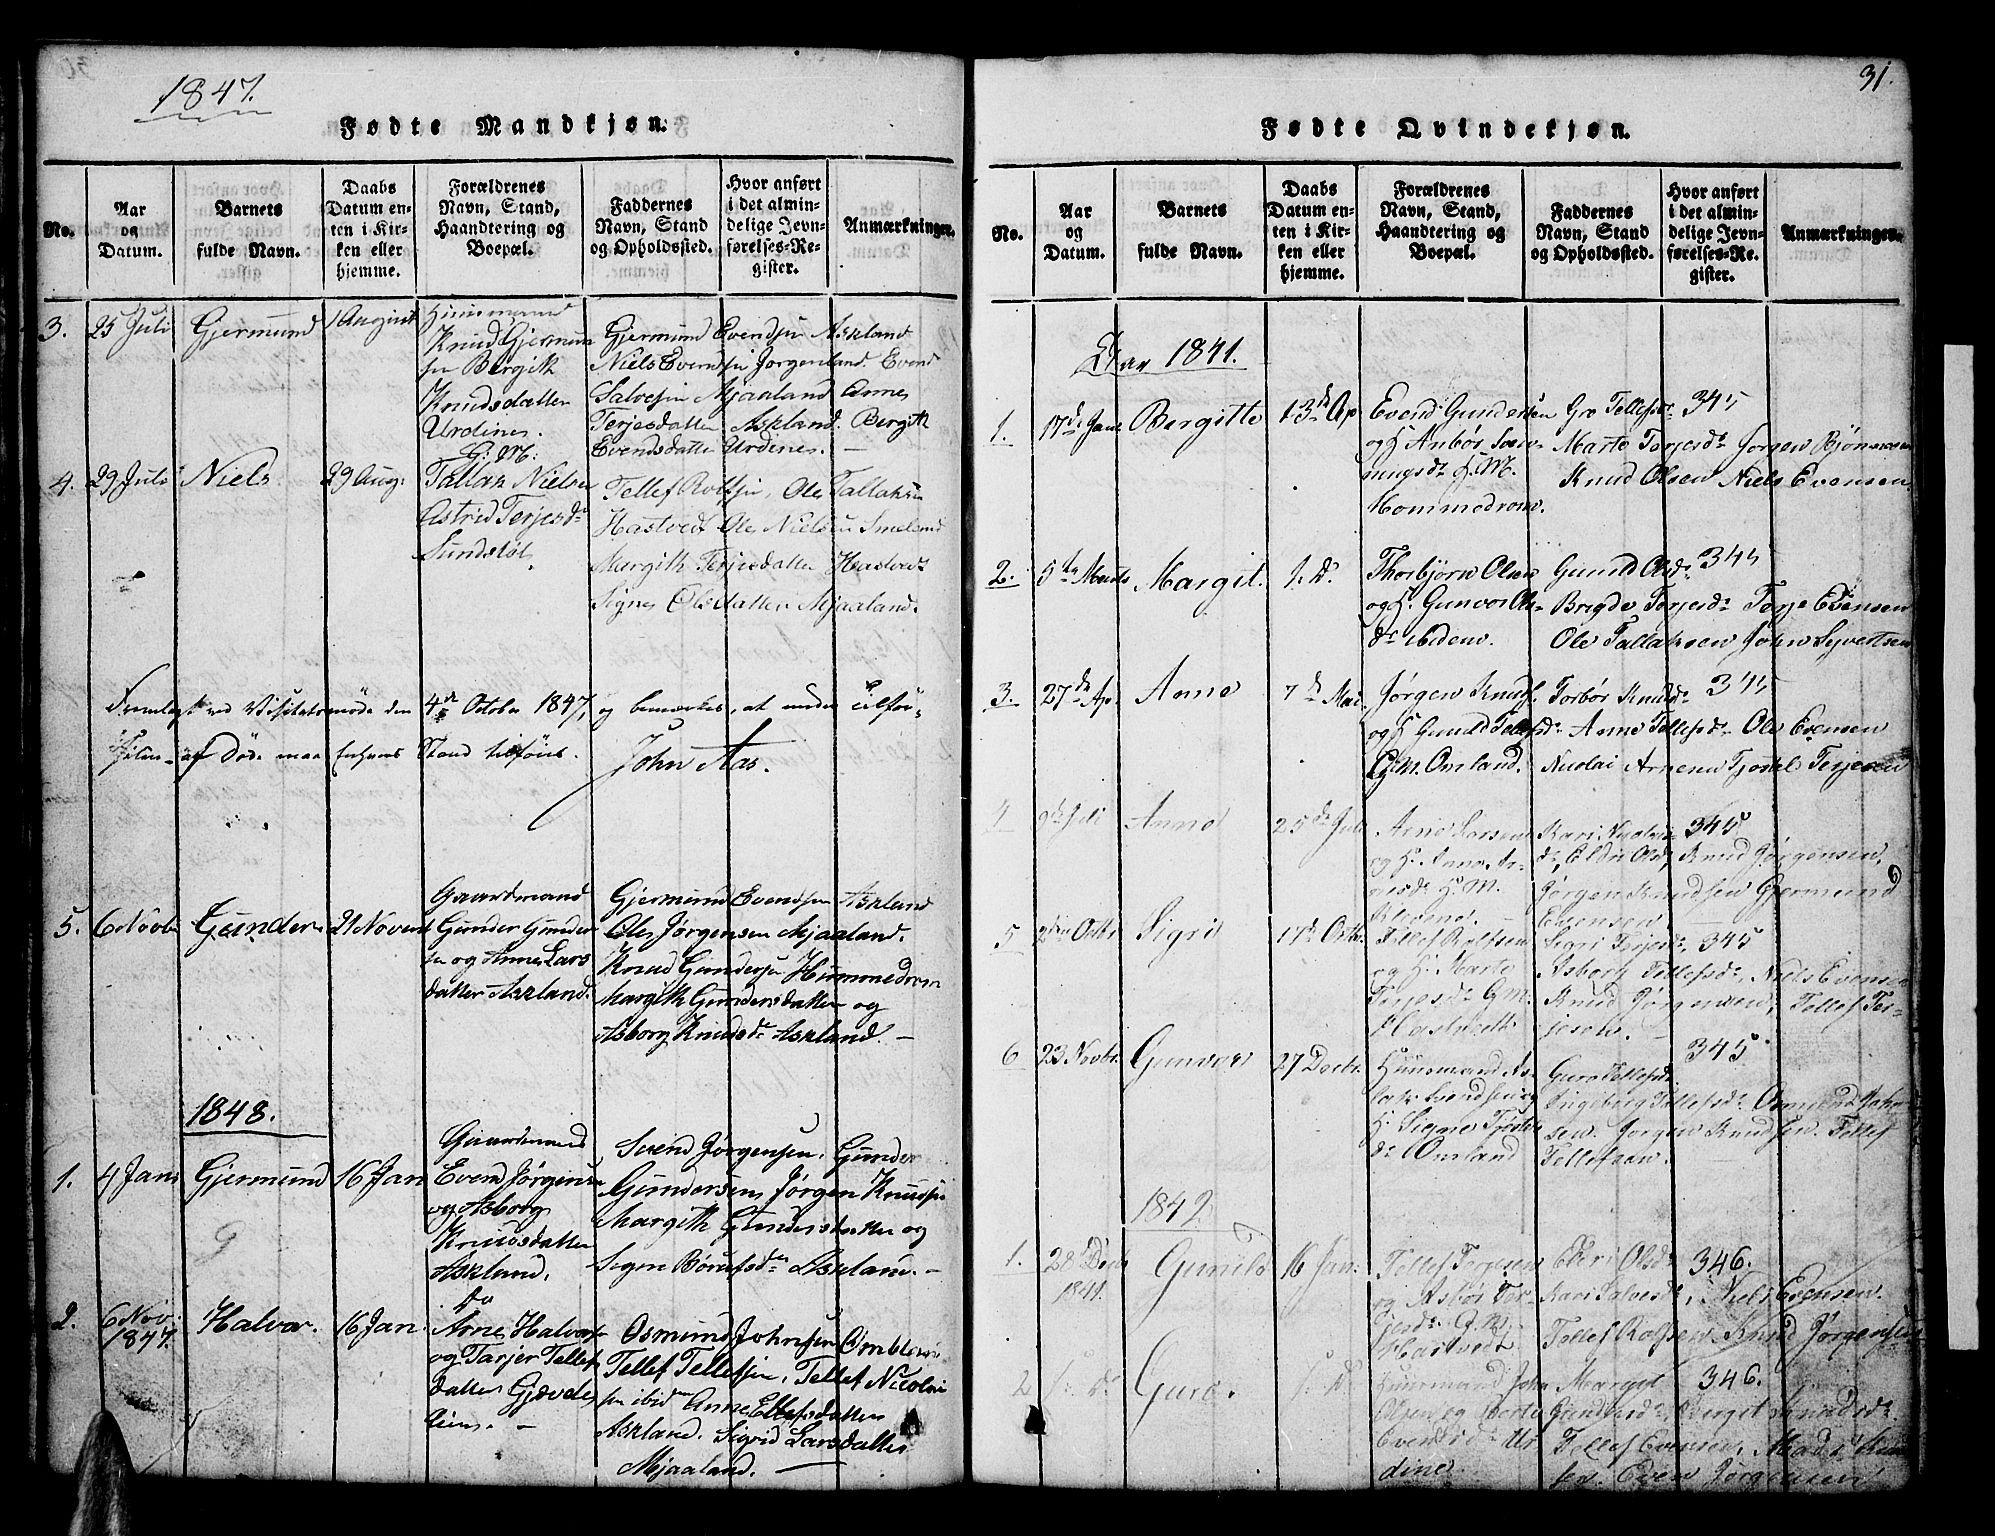 1847.
Fødte Mandkjøn.
No.
Aar
og
Datum.
Barnets
fulde Navn.
Daabs
Datum en-
ten i Kir-
ken eller
hjemme.
Forældrenes
Navn, Stand,
Haandtering og
Boepæl.
Faddernes
Navn, Stand
og Opholdssted.
Hvor anført
i det almin-
delige Jevn-
førelses-Re-
gister.
Anmærkninger.
3.
25 Juli
Gjermund
1 August
Huusmand
Knud Gjermun
sen Bergith
Knudsdatter
Urdines.
G: M:
Gjermund Evendsen Askland
Niels Evendsen Jorgenland. Evend
Salvesen Mjaaland Anne
Terjesdatter Askland. Bergith
Evendsdatter Urdines. —
4.
29 Juli
Niels
29 Aug:
Tallak Nielsen
Astrid Terjesdr
Sundstøl.
Tellef Rolfsen, Ole Tallaksen
Hastvedt Ole Nielsen Smeland
Margith Terjesdatter Hastvedt
Signe Olsdatter Mjaaland.
Fremlagt ved Visitatsmøde den 4de October 1847, og bemærkes, at under
af Døde maa Stand tilføies.
John Aas.
5.
6 Novbr
Gunder
21 Novem
Gaardmand
Gunder Gunder
sen og Anne Lars
datter Askland.
Gjermund Evendsen Askland
Ole Jørgensen Mjaaland.
Knud Gundersen Hommedrom
Margith Gundersdatter og
Asborg Knudsdr Askland. —
1848.
1.
4 Jan
Gjermund
16 Jan
Gaardmand
Evend Jørgensen
og Asborg
Knudsdatter
Askland.
Svend Jørgensen, Gunder
Gundersen Jørgen Knudsen
Margith Gundersdatter og
Signe Askland. —
2.
6 Nov:
1847.
Halvor.
16 Jan.
Do
Arne Halvors
og Tarjer Tellef
datter Gjevde
liens. —
Osmund Johnsen Omland
Tellef Tellefsen, Tellef Nicolai
sen ibid Anne Ellefsdatter
Askland. Sigrid Larsdatter
Mjaaland. —
31.
Fødte Qvindekjøn.
No.
Aar
og
Datum.
Barnets
fulde Navn.
Daabs
Datum en-
ten i Kir-
ken eller
hjemme.
Forældrenes
Navn, Stand,
Haandtering og
Boepæl.
Faddernes
Navn, Stand
og Opholdssted.
Hvor anført
i det almin-
delige Jevn-
førelses-Re-
gister.
Anmærkninger.
Aar 1841.
1.
17de Jan
Bergitte
13de Ap
Evend Gundersen
og H. Anbør Søn-
nungsdr G. M.
Hommedrom.
Gro Tellefsdr 345
Marte Terjesdr Jørgen Bjønnesen
Knud Olsen Niels Evensen.
2.
5te Marts
Margit.
1. d.
Thorbjørn Olsen
og H. Gunvor Ols-
dr ibidem.
Gunild Olsdr 345
Brigde Terjesdr Terje Evensen
Ole Tallaksen John Syvertsen
3.
27de Ap.
Anne
7de Mai.
Jørgen Knuds.
og H Gunild Tellefsdr
G.M. Omland.
Torbør Knudsdr 345
Anne Tellefsdr Ole Evensen
Nicolai Arnesen Tjøstel Terjesen
4
9de Juli
Anne
25de Juli
Arne Larsen
og H. Anne Ar-
nesdr H. M.
Kari Nicolais- 345
dr, Eldri Olsdr, Knud Jørgensen,
Jørgen Knudsen Gjermund
Evensen —
5
2den Octbr
Sigri
17de Octbr
Tellef Rolfsen
og H. Marte
Terjesdr G.M.
Hastvedt
Sigri Terjesdr, 345
Asborg Tellefsdr, Niels Evensen
Knud Jørgensen, Tellef Ter-
jesen. —
6
23 Novbr.
Gunvor
27 Decbr.
Huusmand As-
lak Svendsen og
H. Signe Tjøstels
dr Omland
345.
Guro Tellefsdr
Ingeborg Tellefsdr. Osmund John-
sen. Jørgen Knudsen. Tellef
Tellefsen.
1842
1.
28 Decbr
1841.
Gunild
16 Jan:
Tellef Terjesen
og Asbør Ter-
jesdr. G.M.
Hastvedt
Eldri Olsdr 346.
Kari Salvesdr, Niels Evensen.
Tellef Rolfsen Knud Jørgensen
2
1: d:
Guro.
1: d:
Huusmand John
Olsen og Berte
Evendsdr Ur
dine.
Margit 346.
Gundersdr. Bergit Knudsdr.
Tellef Evensen, Mads Knud
sen. Even Jørgensen